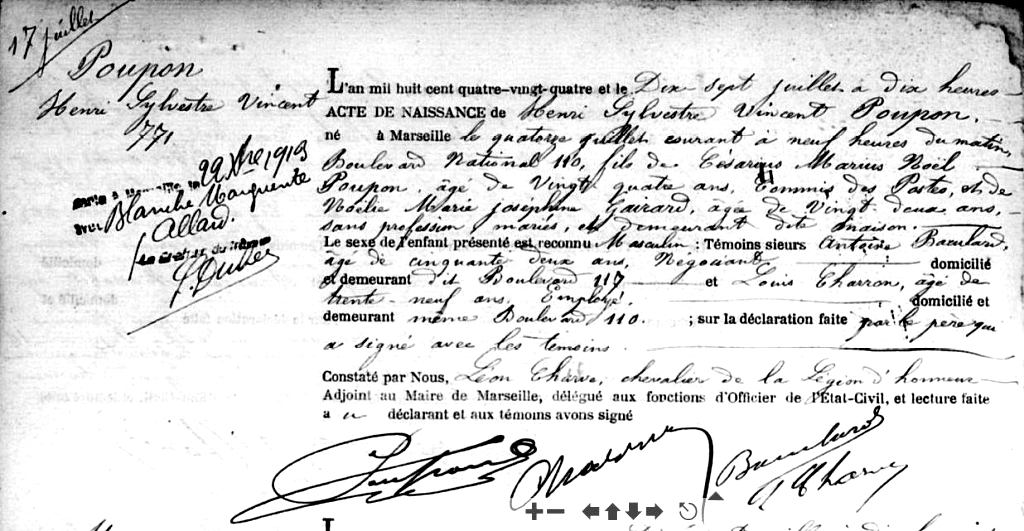 17 juillet
Poupon
Henri Sylvestre Vincent
771
Marié à Marseille le 22 Xbre 1919
avec Blanche Marguerite
Allard.
Le Greffier du Tribunal
L'an mil huit cent quatre-vingt-quatre et le Dix sept juillet à dix heures
ACTE DE NAISSANCE de Henri Sylvestre Vincent Poupon.
né à Marseille le quatorze juillet courant à neuf heures du matin,
Boulevard National 110, fils de Cesarius Marius Noël
Poupon, âgé de Vingt quatre ans, Commis des Postes, et de
Noëlie Marie Josephine Gairard, âgée de Vingt deux ans,
sans profession, mariés, et demeurant dite maison.
Le sexe de l'enfant présenté est reconnu Masculin : Témoins sieurs Antoine Baculard,
âgé de cinquante deux ans, Négociant domicilié
et demeurant dit Boulevard 117 et Louis Charron, âgé de
trente-neuf ans, Employé. domicilié et
demeurant même Boulevard 110. ; sur la déclaration faite par le père qui
a signé avec les temoins.
Constaté par Nous, Léon Charve, chevalier de la Légion d'honneur
Adjoint au Maire de Marseille, délégué aux fonctions d'Officier de l'État-Civil, et lecture faite
a u déclarant et aux témoins avons signé
Poupon Baculard
Charve
L